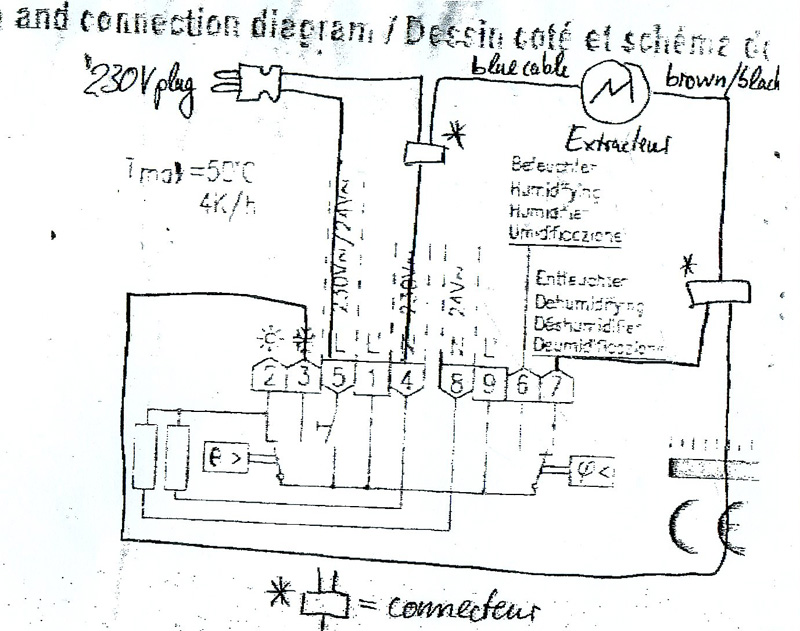 and connection diagram / Dessin coté et schéma de
230V plug
blue cable
brown/black
M
*
Extracteur
Tmax=50°C
4K/h
Befeuchten
Humidifying
Humidifier
Umidificazione
*
Entfeuchten
Dehumidifying
Déshumidifier
Deumidificazione
230V~/24V~
230V~
24V~
L L' N N L'
2 3 5 1 4 8 9 6 7
θ >
φ <
CE
* = connecteur